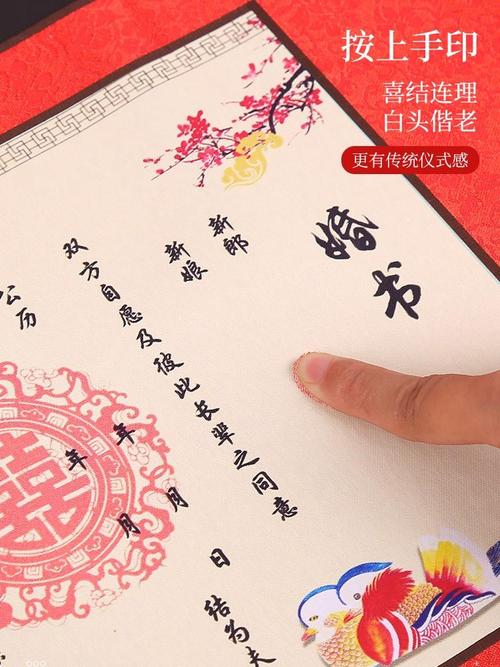 按上手印
喜结连理
白头偕老
更有传统仪式感
婚书
新郎
新娘
双方自愿及彼此长辈之同意
公历 年 月 日 结为夫
年 月
囍